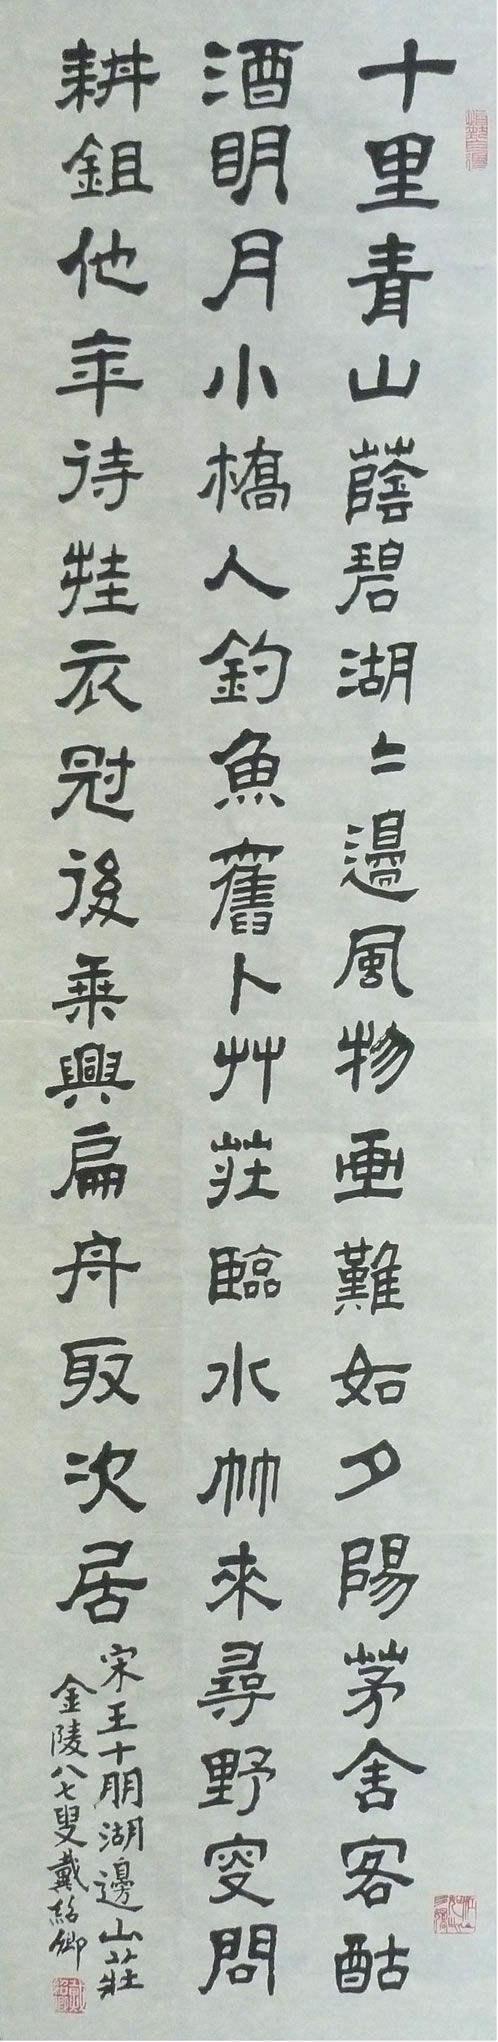 十里青山蔭碧湖〻邊風物画難如夕陽茅舍客酤
酒明月小橋人釣魚舊卜艸莊臨水竹來尋野叟問
耕鉏他年待挂衣冠後乘興扁舟取次居
宋王十朋湖邊山莊
金陵八七叟戴紹卿